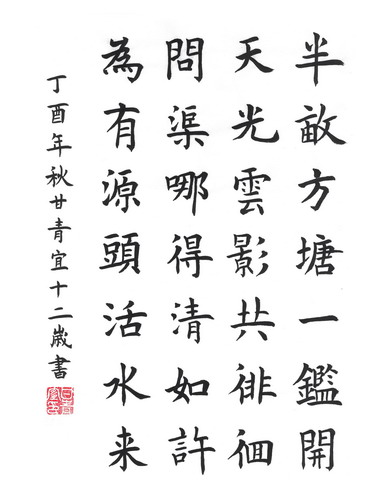 半畝方塘一鑑開
天光雲影共徘徊
問渠哪得清如許
為有源頭活水来
丁酉年秋甘青宜十二歲書